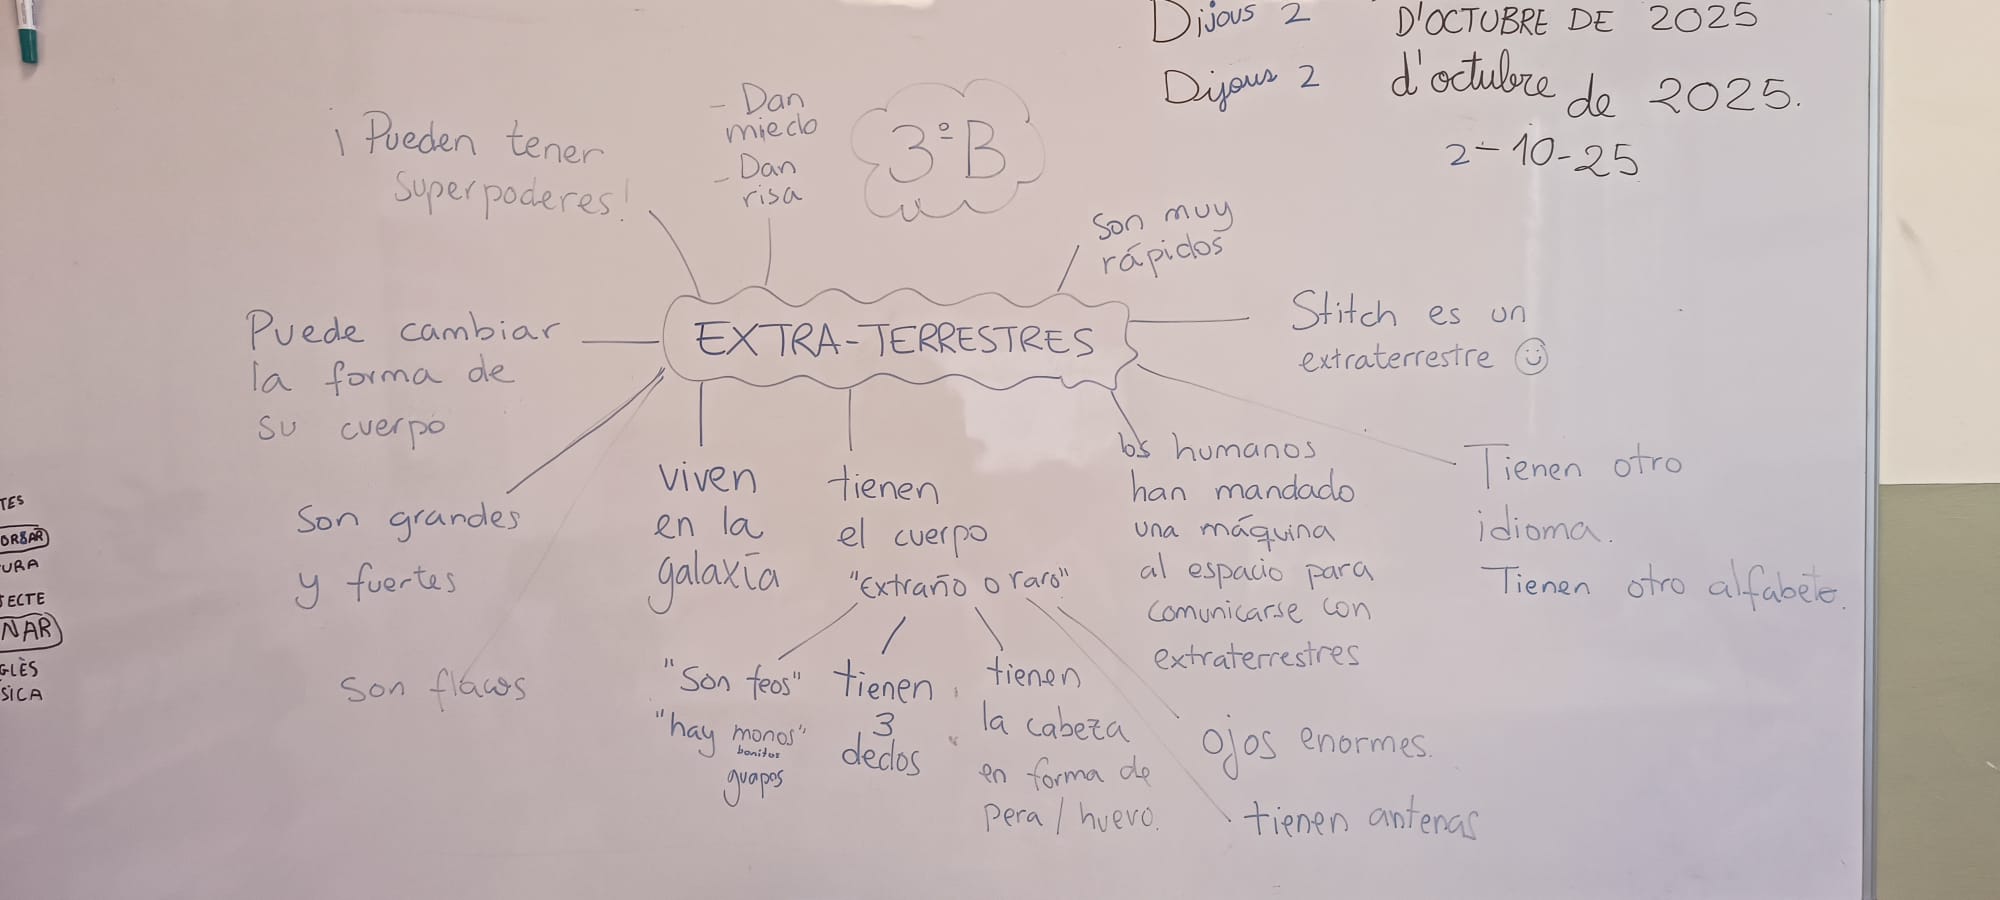 Dijous 2 D'OCTUBRE DE 2025
Dijous 2 d'octubre de 2025.
2-10-25
3ºB
- Dan
miedo
- Dan
risa
¡Pueden tener
superpoderes!
Son muy
rápidos
EXTRA-TERRESTRES
Stitch es un
extraterrestre
Puede cambiar
la forma de
su cuerpo
Son grandes
y fuertes
son flacos
viven
en la
galaxia
tienen
el cuerpo
"Extraño o raro"
"Son feos"
"hay monos"
bonitos
guapos
tienen
3
dedos
tienen
la cabeza
en forma de
pera / huevo.
ojos enormes.
tienen antenas
los humanos
han mandado
una máquina
al espacio para
comunicarse con
extraterrestres
Tienen otro
idioma.
Tienen otro alfabeto.
TES
URA
ECTE
NAR
GLÈS
SICA